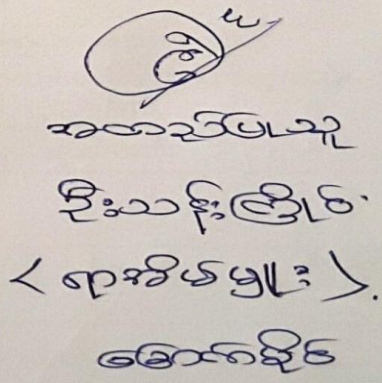 အတည်ပြုသူ
ဦးသန်းကြိုင်
< ရာအိမ်မှူး >.
မြောက်ပိုင်